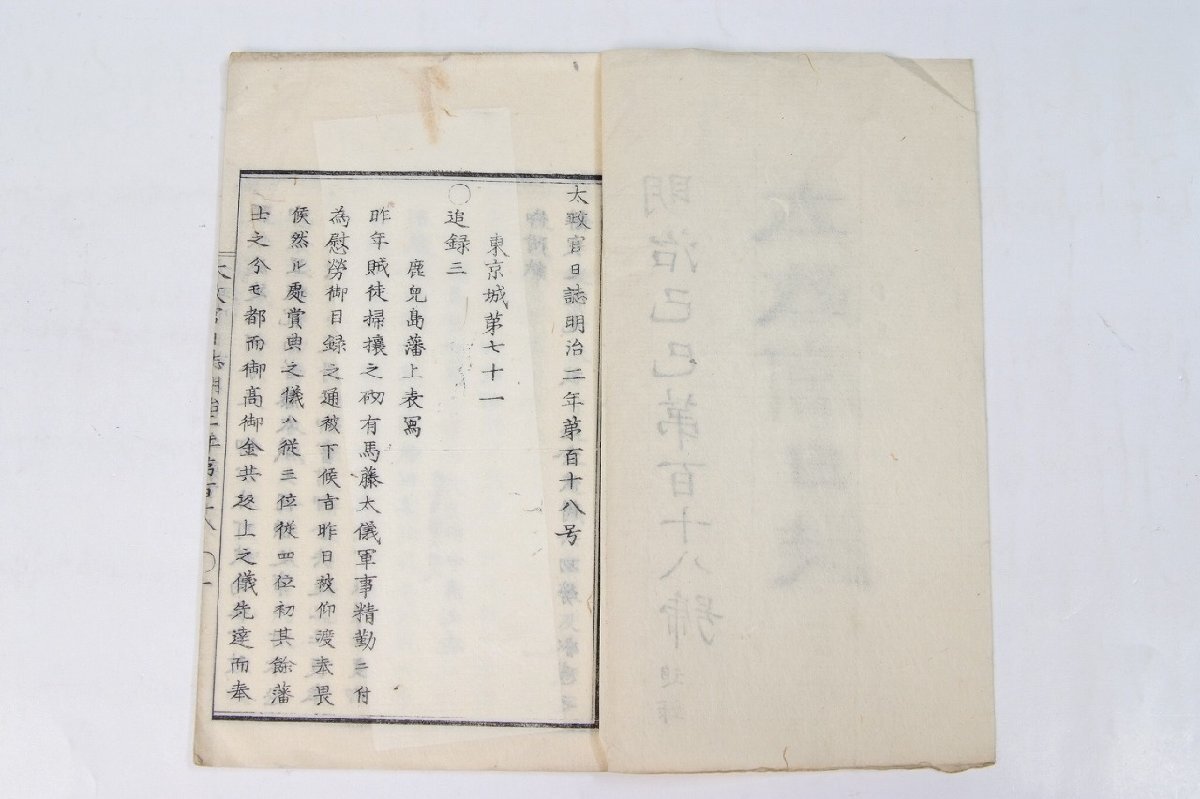 太政官日誌明治二年第百十八号
東京城第七十一
〇追録三
鹿児島藩上表写
昨年賊徒掃攘之砌有馬藤太儀軍事精勤ニ付
為慰労御目録之通被下候旨昨日被仰渡奉畏
候然ル処賞典之儀ハ従三位従四位初其餘藩
士之分モ都而御高御金共返上之儀先達而奉
官日誌明治二年第百十八 〇一
明治己巳第百十八號